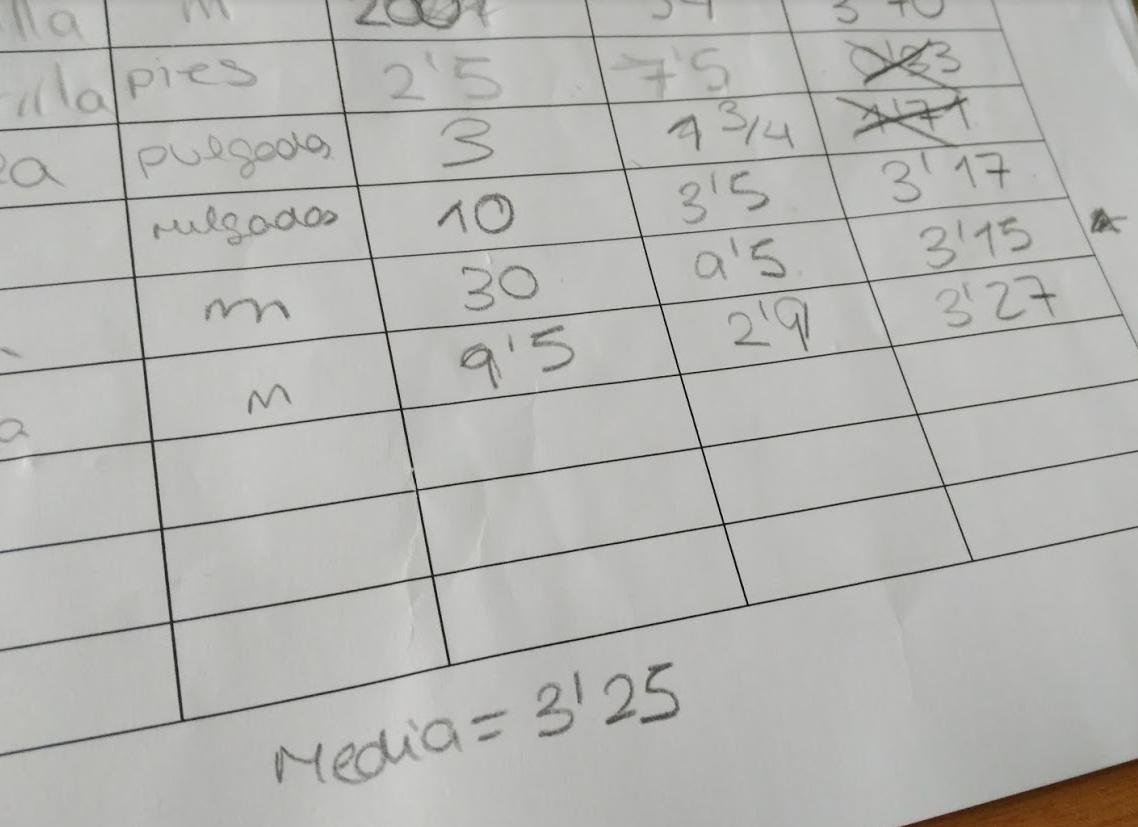 lla m
pies 2'5 7'5
pulgadas 3 1 3/4
pulgadas 10 3'5 3'17
m 30 9'5 3'15
m 9'5 2'9 3'27
Media = 3'25